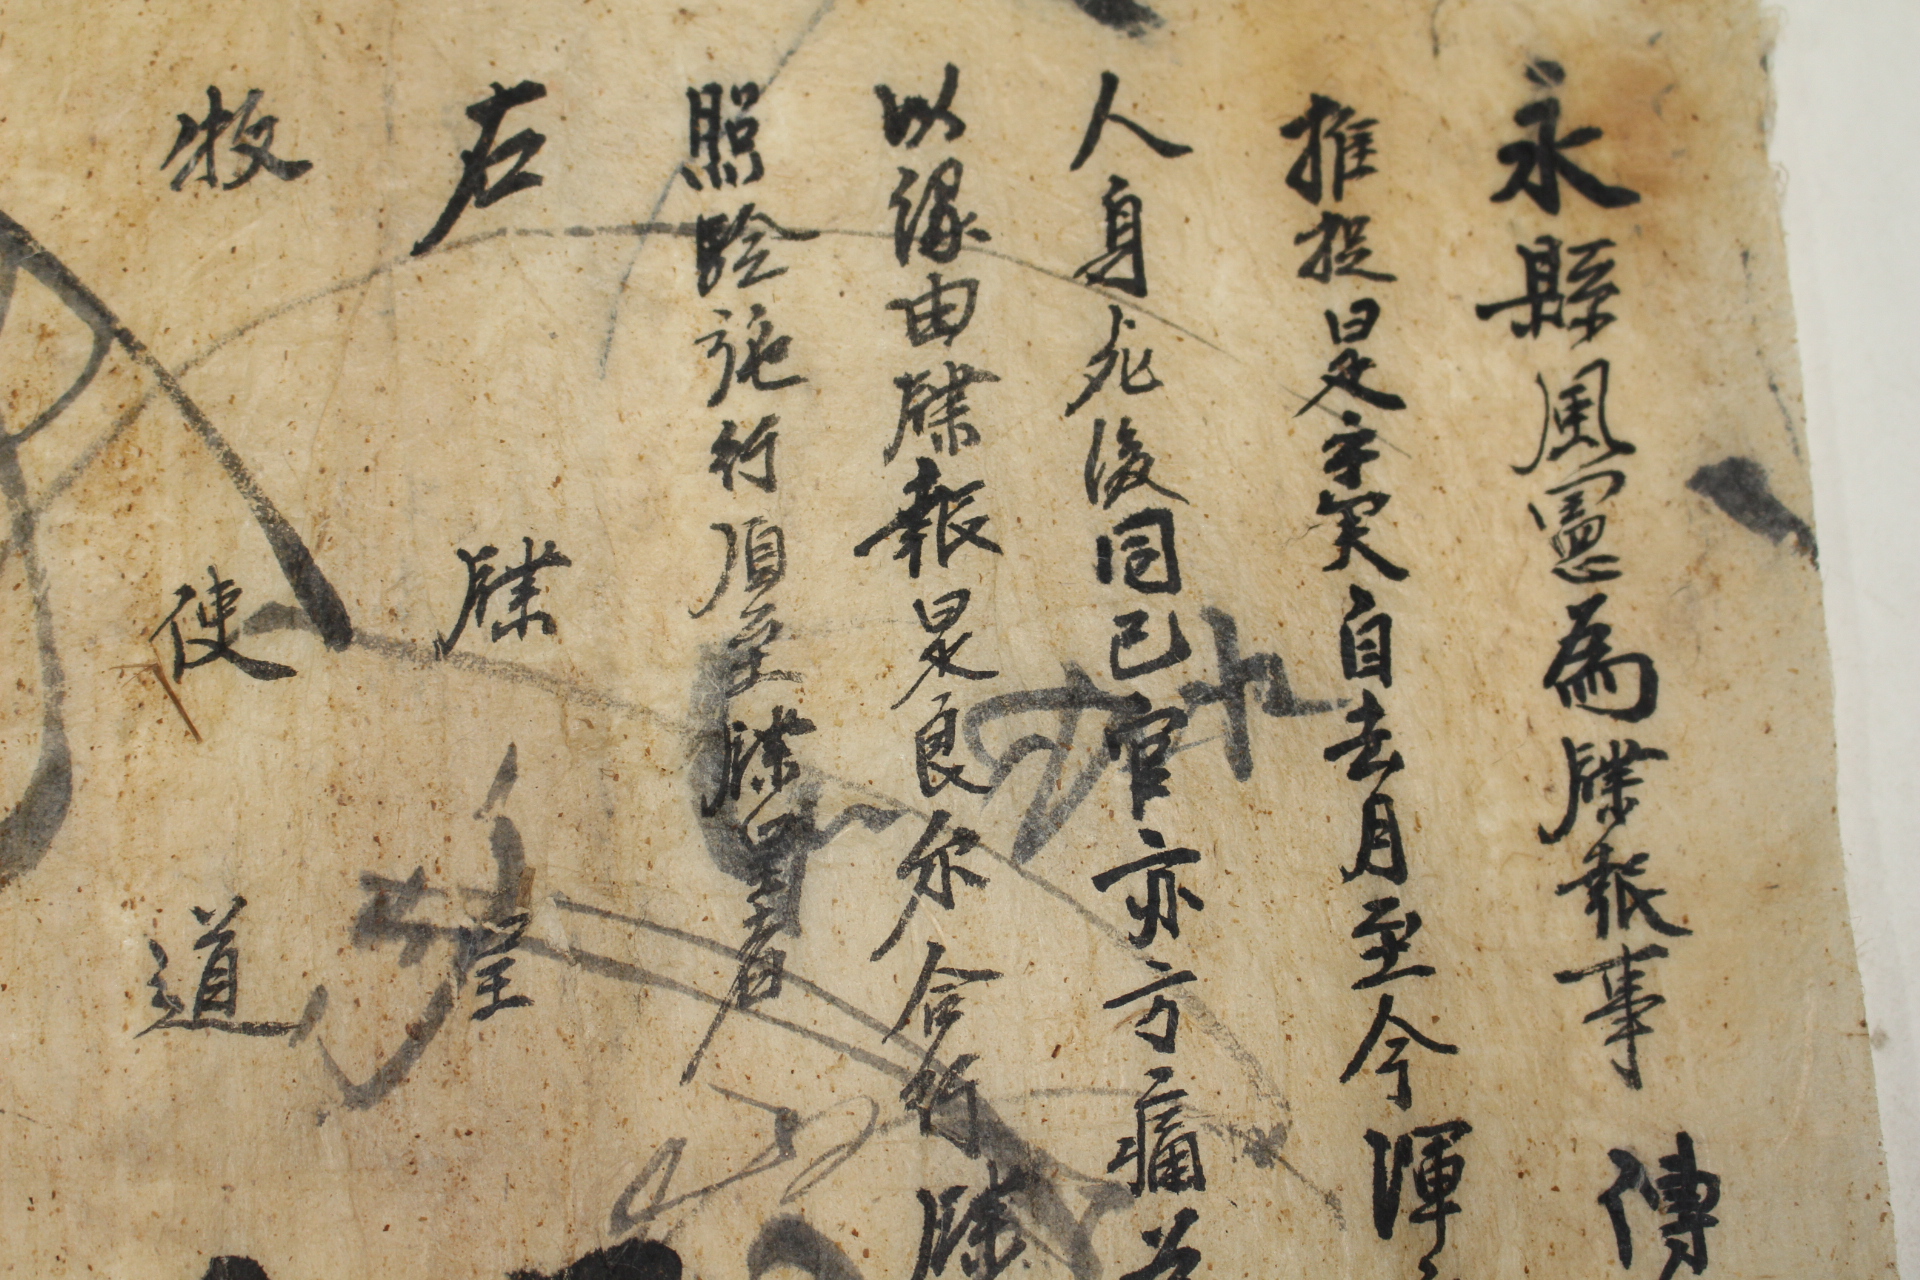 永縣風憲為牒報事傳
推捉是乎矣自去月至今渾
人身死後同已官亦方痛
以緣由牒報是良尔合行牒
照驗施行須至牒呈者
右牒呈
牧使道